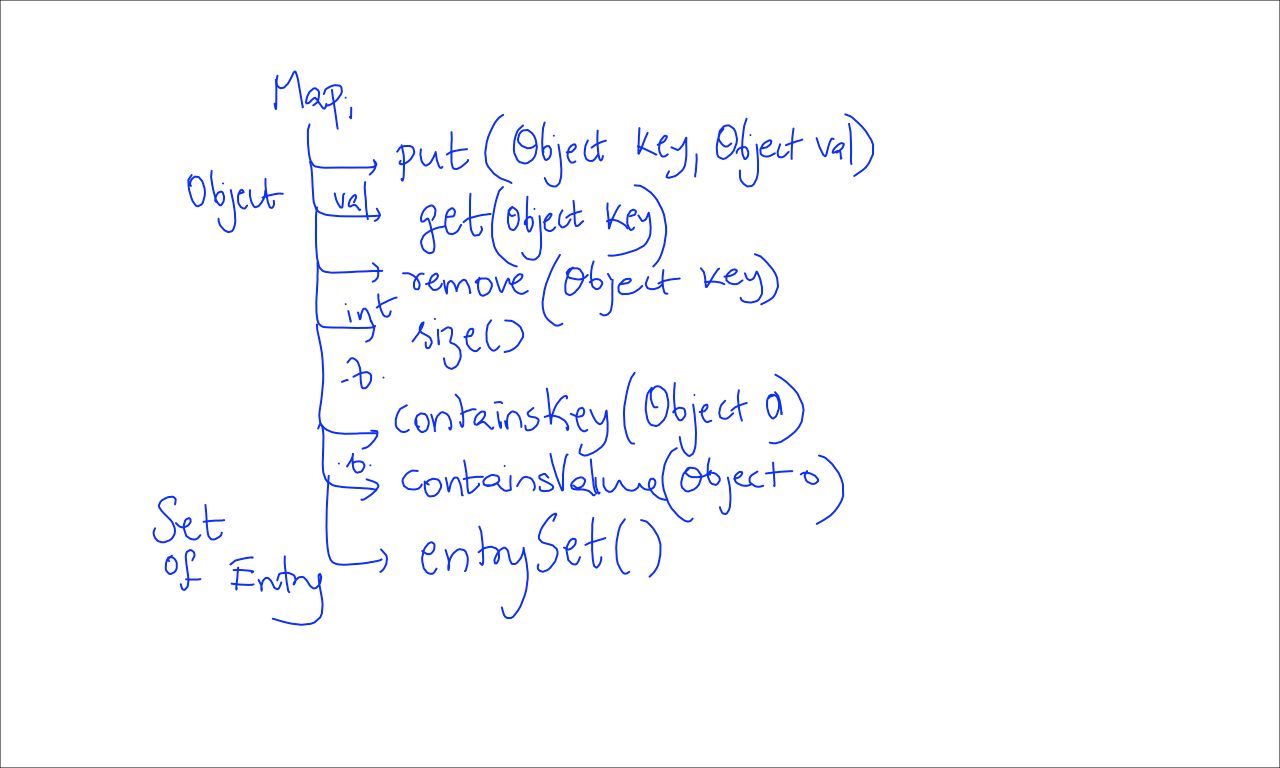 Map,
put (Object key, Object val)
Object val get(Object key)
remove (Object key)
int size()
b
containsKey (Object o)
b containsValue(Object o)
Set
of Entry
entrySet()